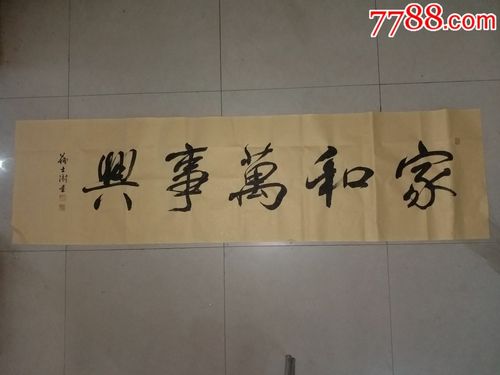 7788.com
家和萬事興
蘇士澍書